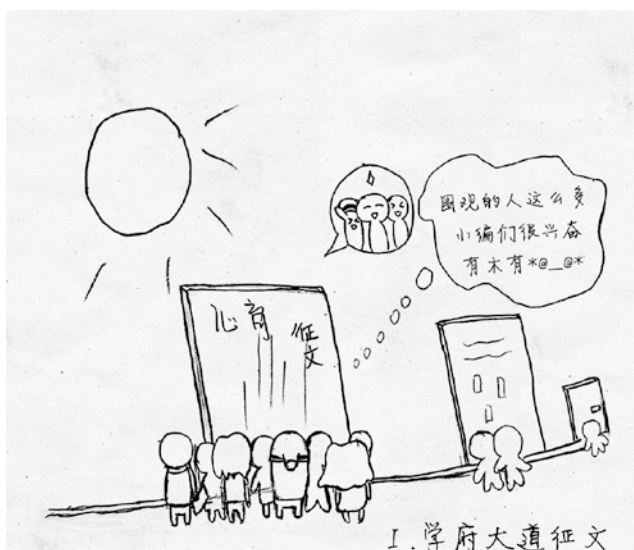 围观的人这么多
小编们很兴奋
有木有*@__@*
心育
征文
1.学府大道征文